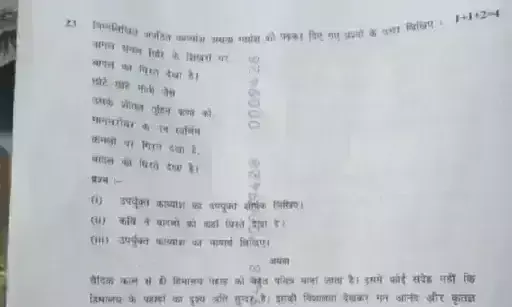 23 निम्नलिखित अपठित काव्यांश अथवा गद्यांश को पढ़कर दिए गए प्रश्नों के उत्तर लिखिए : 1+1+2=4
अमल धवल गिरि के शिखरों पर
बादल को घिरते देखा है।
छोटे छोटे मोती जैसे
उसके शीतल तुहिन कणों को
मानसरोवर के उन स्वर्णिम
कमलों पर गिरते देखा है,
बादल को घिरते देखा है।
प्रश्न :-
(i) उपर्युक्त काव्यांश का उपयुक्त शीर्षक लिखिए।
(ii) कवि ने बादलों को कहाँ घिरते देखा है।
(iii) उपर्युक्त काव्यांश का भावार्थ लिखिए।
अथवा
वैदिक काल से ही हिमालय पहाड़ को बहुत पवित्र माना जाता है। इसमें कोई संदेह नहीं कि
हिमालय के पहाड़ों का दृश्य अति सुन्दर है। इसकी विशालता देखकर मन आनंद और कृतज्ञ
0009426